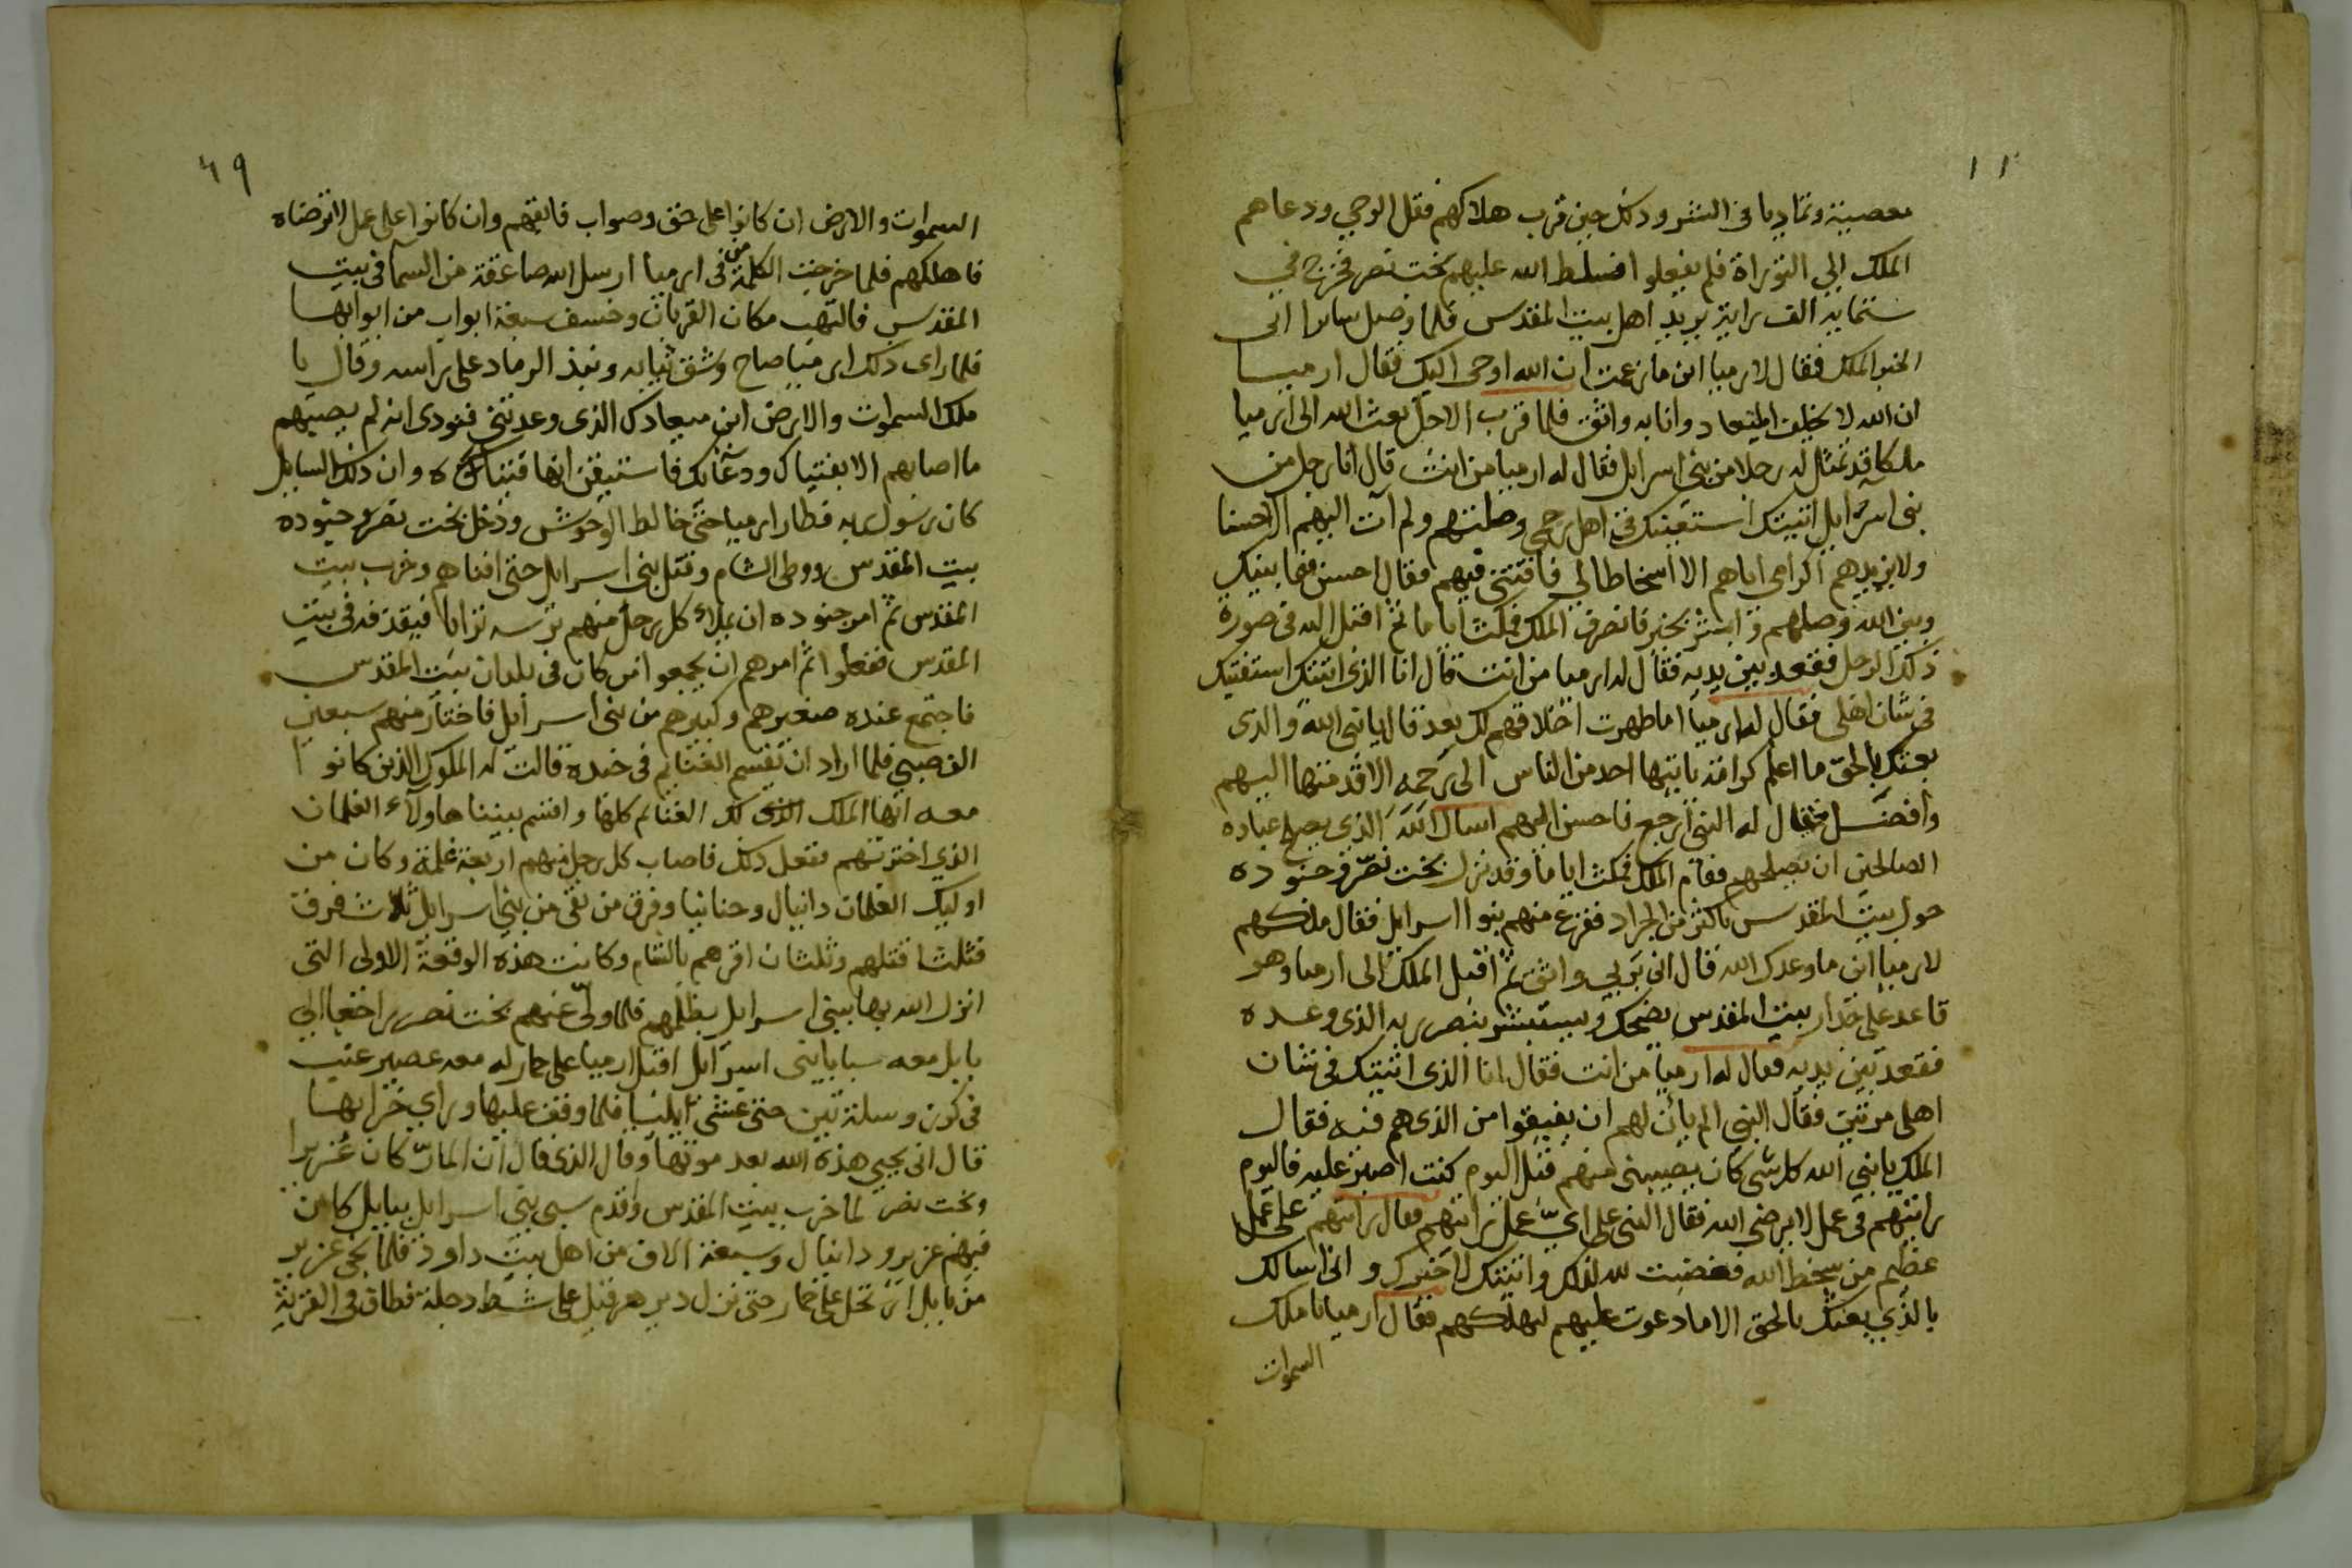 معصية وتماديا في الشر وذلك حين قرب هلاكهم فقل الوحي ودعاهم
الملك الي التوراة فلم يفعلوا فسلط الله عليهم بخت نصر فخرج في
ستمايه الف راية يريد اهل بيت المقدس فلما وصل سايرا اتى
الخبر الملك فقال لارميا اين ما زعمت ان الله اوحى اليك فقال ارميا
ان الله لا يخلف الميعاد وانا به واثق فلما قرب الاجل بعث الله الى ارميا
ملكا قد تمثل له رجلا من بني اسرايل فقال له ارميا من انت قال انا رجل من
بني اسرايل اتيتك استفتيك في اهل رحمي وصلتهم ولم آت اليهم الا حسنا
ولا يزيدهم اكرامي اياهم الا اسخاطا لي فافتني فيهم فقال احسن فيما بينك
وبين الله وصلهم وابشر بخير فانصرف الملك فمكث اياما ثم اقبل اليه في صورة
ذلك الرجل فقعد بين يديه فقال له ارميا من انت قال انا الذي اتيتك استفتيك
في شان اهلي فقال له ارميا اما طهرت اخلاقهم لك بعد قال يا نبي الله والذي
بعثك بالحق ما اعلم كرامة ياتيها احد من الناس الى رحمه الا قدمتها اليهم
وافضل فقال له النبي ارجع فاحسن اليهم اسال الله الذي يصلح عباده
الصالحين ان يصلحهم فقام الملك فمكث اياما وقد نزل بخت نصر وجنوده
حول بيت المقدس باكثر من الجراد ففزع منهم بنوا اسرايل فقال ملكهم
لارميا اين ما وعدك الله قال اني بربي واثق ثم اقبل الملك الى ارميا وهو
قاعد على جدار بيت المقدس يضحك ويستبشر بنصر ربه الذي وعده
فقعد بين يديه فقال له ارميا من انت فقال انا الذي اتيتك في شان
اهلي مرتين فقال النبي الم يأن لهم ان يفيقوا من الذي هم فيه فقال
الملك يا نبي الله كل شي كان يصيبني منهم قبل اليوم كنت اصبر عليه فاليوم
رايتهم في عمل لا يرضي الله فقال النبي على ايّ عمل رايتهم فقال رايتهم على عمل
عظيم من سخط الله فغضبت لله لذلك واتيتك لاخبرك واني اسالك
بالذي بعثك بالحق الا ما دعوت عليهم ليهلكهم فقال ارميا يا ملك
السموات
٤٩
السموات والارض ان كانوا على حق وصواب فابقهم وان كانوا على عمل لا ترضاه
فاهلكهم فلما خرجت الكلمة من في ارميا ارسل الله صاعقة من السما في بيت
المقدس فالتهب مكان القربان وخسف سبعة ابواب من ابوابها
فلما راى ذلك ارميا صاح وشق ثيابه ونبذ الرماد على راسه وقال يا
ملك السموات والارض اين ميعادك الذي وعدتني فنودي انه لم يصيبهم
ما اصابهم الا بفتياك ودعائك فاستيقن انها فتياه وان ذلك السايل
كان رسول ربه فطار ارميا حتى خالط الوحوش ودخل بخت نصر وجنوده
بيت المقدس ووطى الشام وقتل بني اسرايل حتى افناهم وخرب بيت
المقدس ثم امر جنوده ان يملاء كل رجل منهم ترسه ترابا فيقذفه في بيت
المقدس ففعلوا ثم امرهم ان يجمعوا من كان في بلدان بيت المقدس
فاجتمع عنده صغيرهم وكبيرهم من بني اسرايل فاختار منهم سبعين
الف صبي فلما اراد ان تقسم الغنايم في جنده قالت له الملوك الذين كانوا
معه ايها الملك لك الغنايم كلها واقسم بيننا هاولاء الغلمان
الذي اخترتهم ففعل ذلك فاصاب كل رجل منهم اربعة غلمة وكان من
اوليك الغلمان دانيال وحنانيا وفرق من بقى من بني اسرايل ثلاث فرق
فثلثا قتلهم وثلثان اقرهم بالشام وكانت هذه الوقعة الاولى التي
انزل الله بها ببني اسرايل بظلمهم فلما ولّى عنهم بخت نصر راجعا الي
بابل معه سبايا بني اسرايل اقبل ارميا على حمار له معه عصير عنب
في ركوة وسلة تين حتى غشى ايليا فلما وقف عليها وراي خرابها
قال انى يحيي هذه الله بعد موتها وقال الذي قال ان المارّ كان عُزيرا
وبخت نصر لما خرب بيت المقدس وقدم سبي بني اسرايل ببابل كان
فيهم عزير ودانيال وسبعة الاف من اهل بيت داود فلما نجى عزير
من بابل ارتحل على حمار حتى نزل دير هرقيل على شط دجلة فطاف في القرية